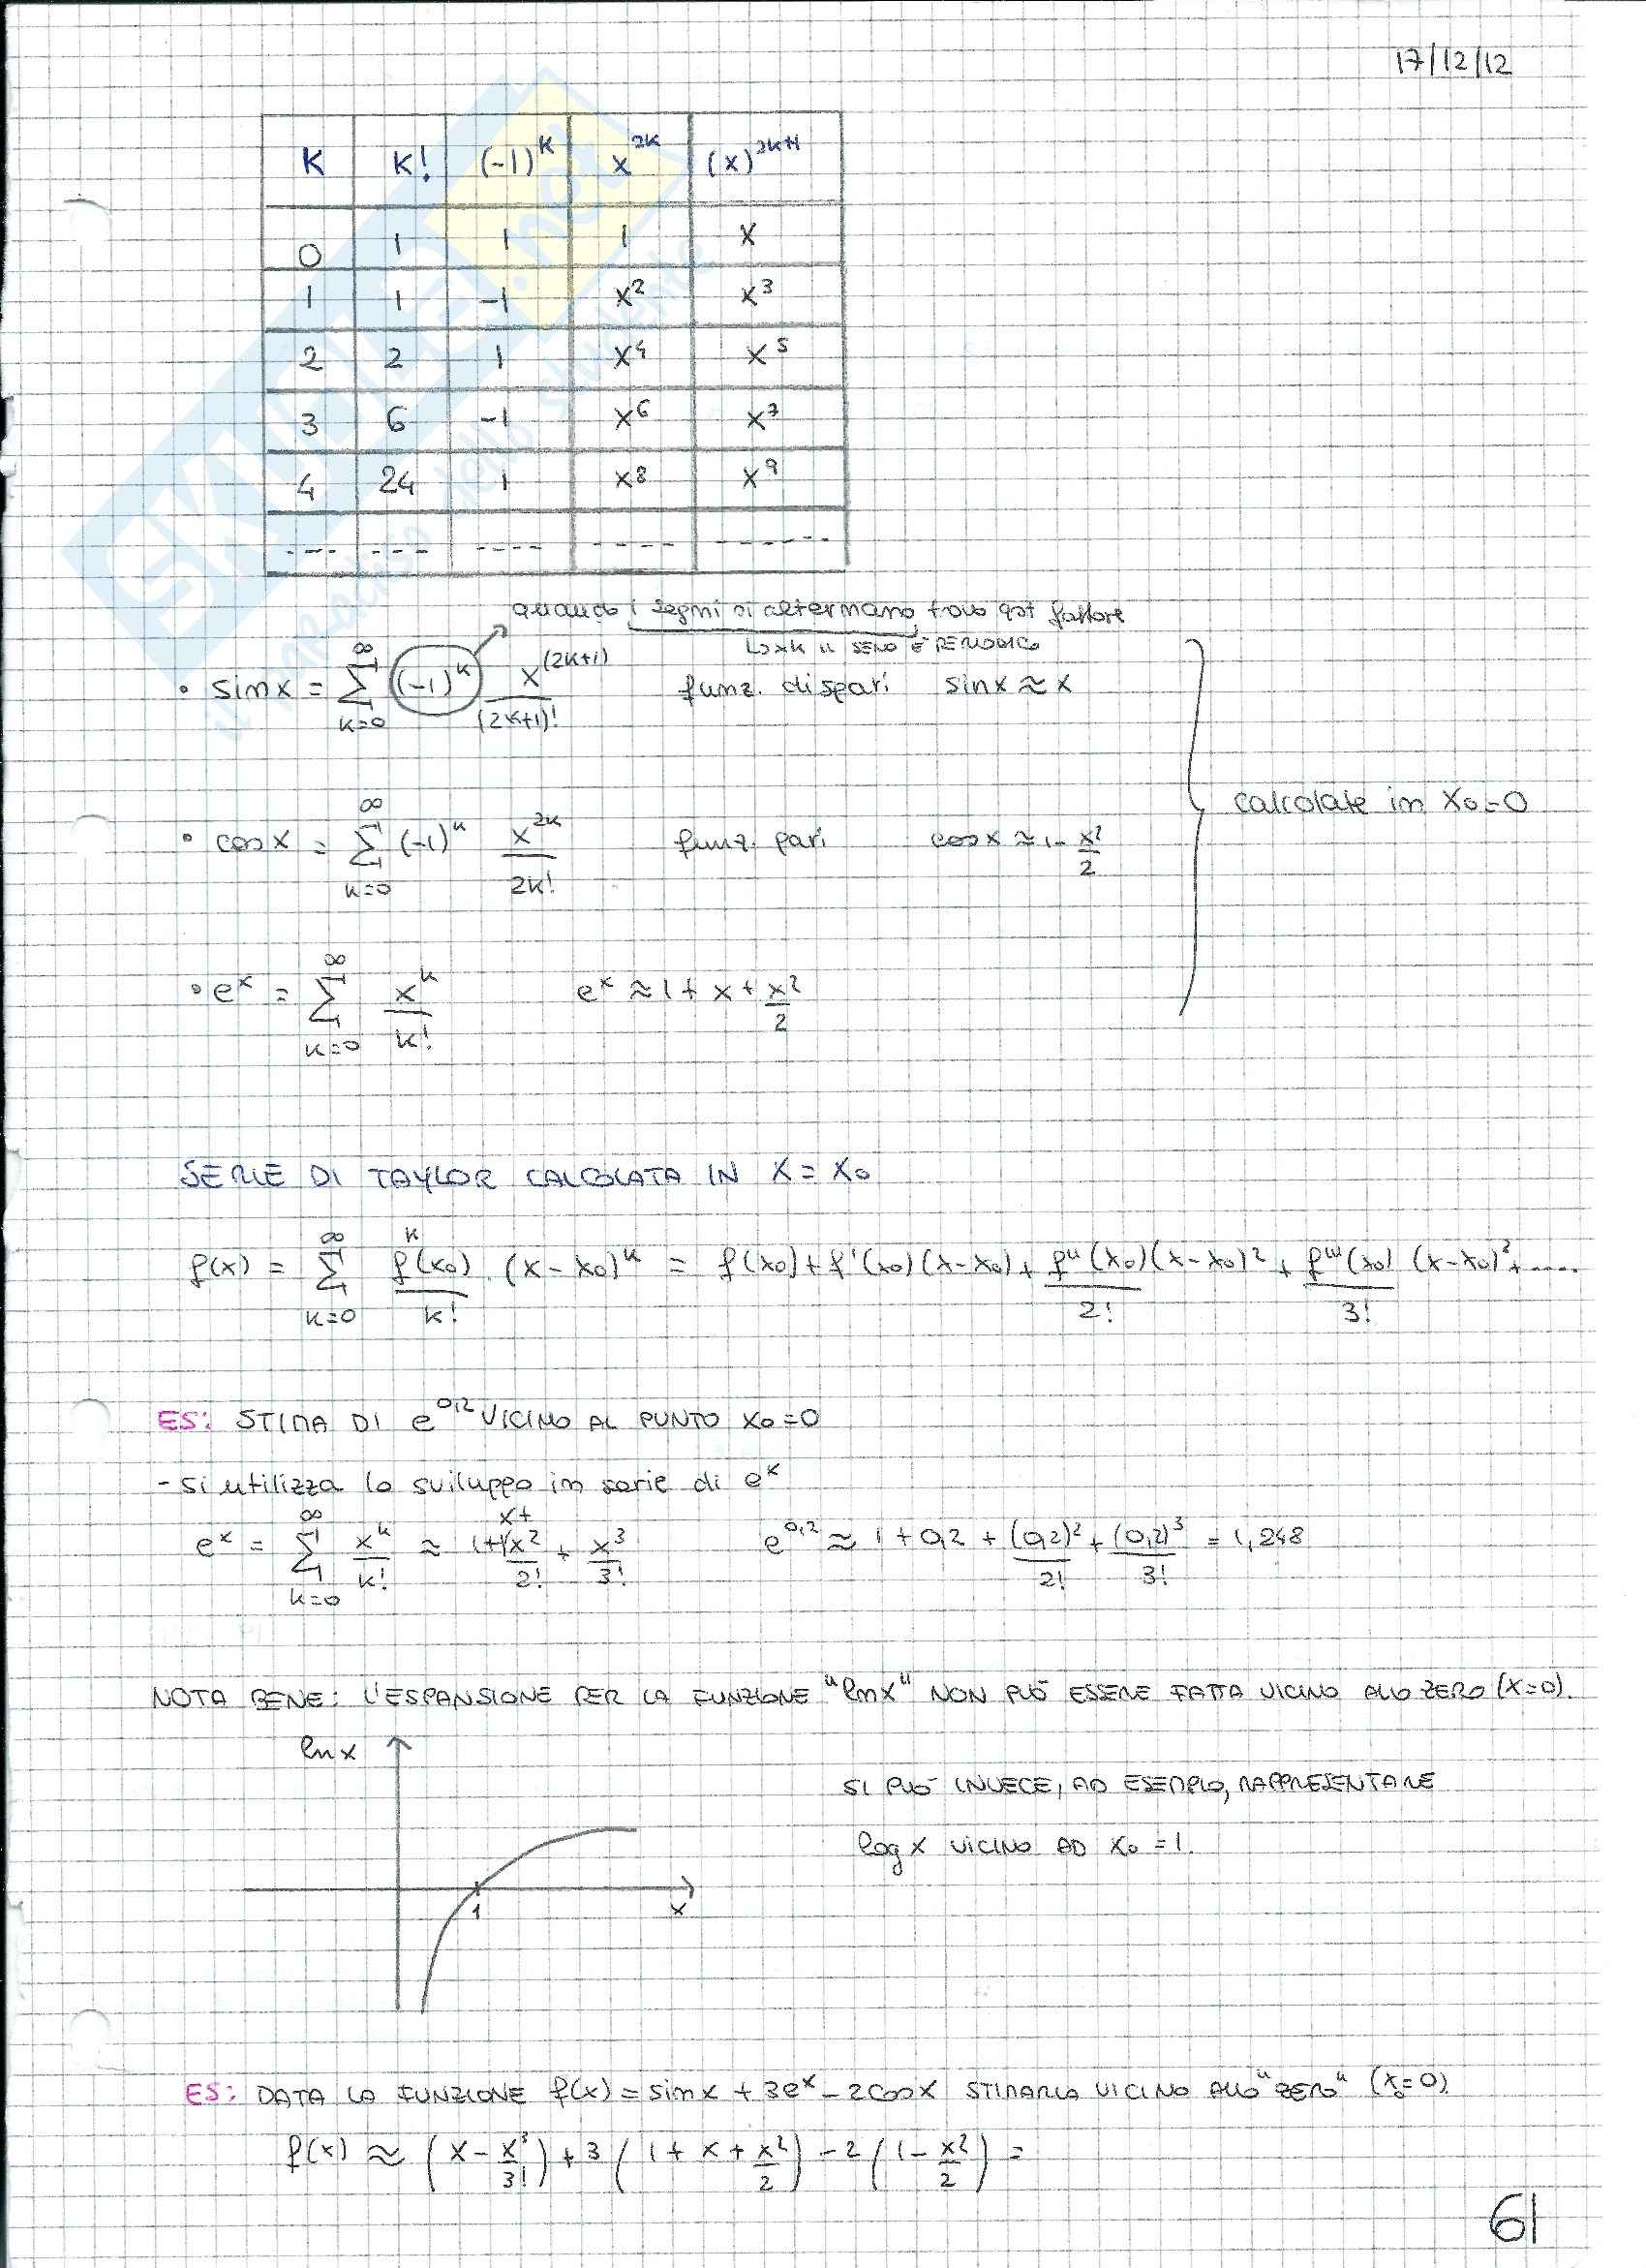 17/12/12
K K! (-1)^K x^2K (x)^2K+1
0 1 1 1 x
1 1 -1 x² x³
2 2 1 x⁴ x⁵
3 6 -1 x⁶ x⁷
4 24 1 x⁸ x⁹
---- ---- ---- ---- ------
quando i segni si alternano, trovo qst fattore
↳ xk il seno è periodico
• sinx = ∞ Σ k=0 (-1)^k x^(2k+1) / (2k+1)! funz. dispari sinx ≈ x
• cosx = ∞ Σ k=0 (-1)^k x^2k / 2k! funz. pari cosx ≈ 1 - x²/2
calcolate in x₀=0
• e^x = ∞ Σ k=0 x^k / k! e^x ≈ 1 + x + x²/2
SERIE DI TAYLOR CALCOLATA IN X = X₀
f(x) = ∞ Σ k=0 f^k(x₀)/k! · (x-x₀)^k = f(x₀) + f'(x₀)(x-x₀) + f''(x₀)/2! (x-x₀)² + f'''(x₀)/3! (x-x₀)³ + ....
ES: STIMA DI e^0,2 VICINO AL PUNTO X₀=0
- si utilizza lo sviluppo in serie di e^x
e^x = ∞ Σ k=0 x^k/k! ≈ 1+x+x²/2! + x³/3! e^0,2 ≈ 1 + 0,2 + (0,2)²/2! + (0,2)³/3! = 1,248
NOTA BENE: L'ESPANSIONE PER LA FUNZIONE "lnx" NON PUÒ ESSERE FATTA VICINO ALLO ZERO (X=0).
lnx
SI PUÒ INVECE, AD ESEMPIO, RAPPRESENTARE
logx VICINO AD X₀=1.
1 x
ES: DATA LA FUNZIONE f(x) = sinx + 3e^x - 2cosx STIMARLA VICINO ALLO "ZERO" (x₀=0)
f(x) ≈ (x - x³/3!) + 3(1 + x + x²/2) - 2(1 - x²/2) =
61